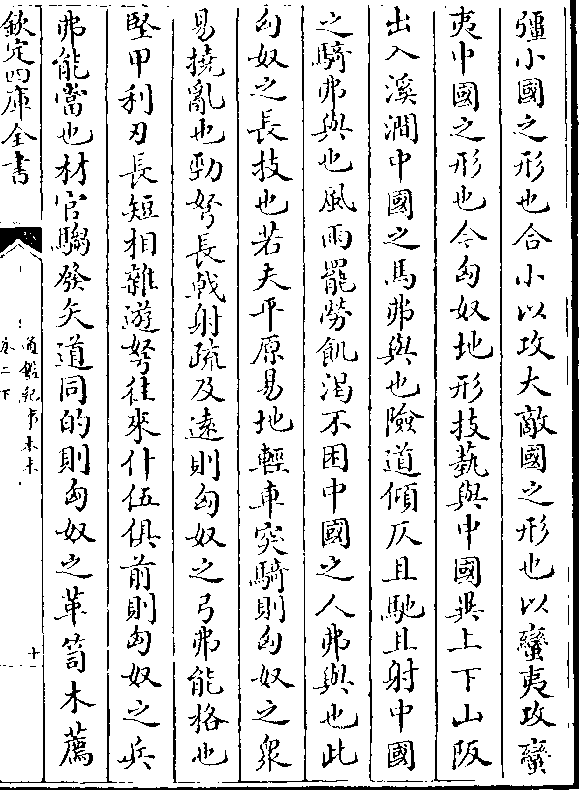 彊小國之形也合小以攻大敵國之形也以蠻夷攻蠻
夷中國之形也今匈奴地形技藝與中國異上下山阪
出入溪澗中國之馬弗與也險道傾仄且馳且射中國
之騎弗與也風雨罷勞飢渴不困中國之人弗與也此
匈奴之長技也若夫平原易地輕車突騎則匈奴之衆
易撓亂也勁弩長戟射疏及遠則匈奴之弓弗能格也
堅甲利刃長短相雜遊弩往來什伍俱前則匈奴之兵
弗能當也材官騶發矢道同的則匈奴之革笥木薦
欽定四庫全書
通鑑紀事本末
卷二下
十